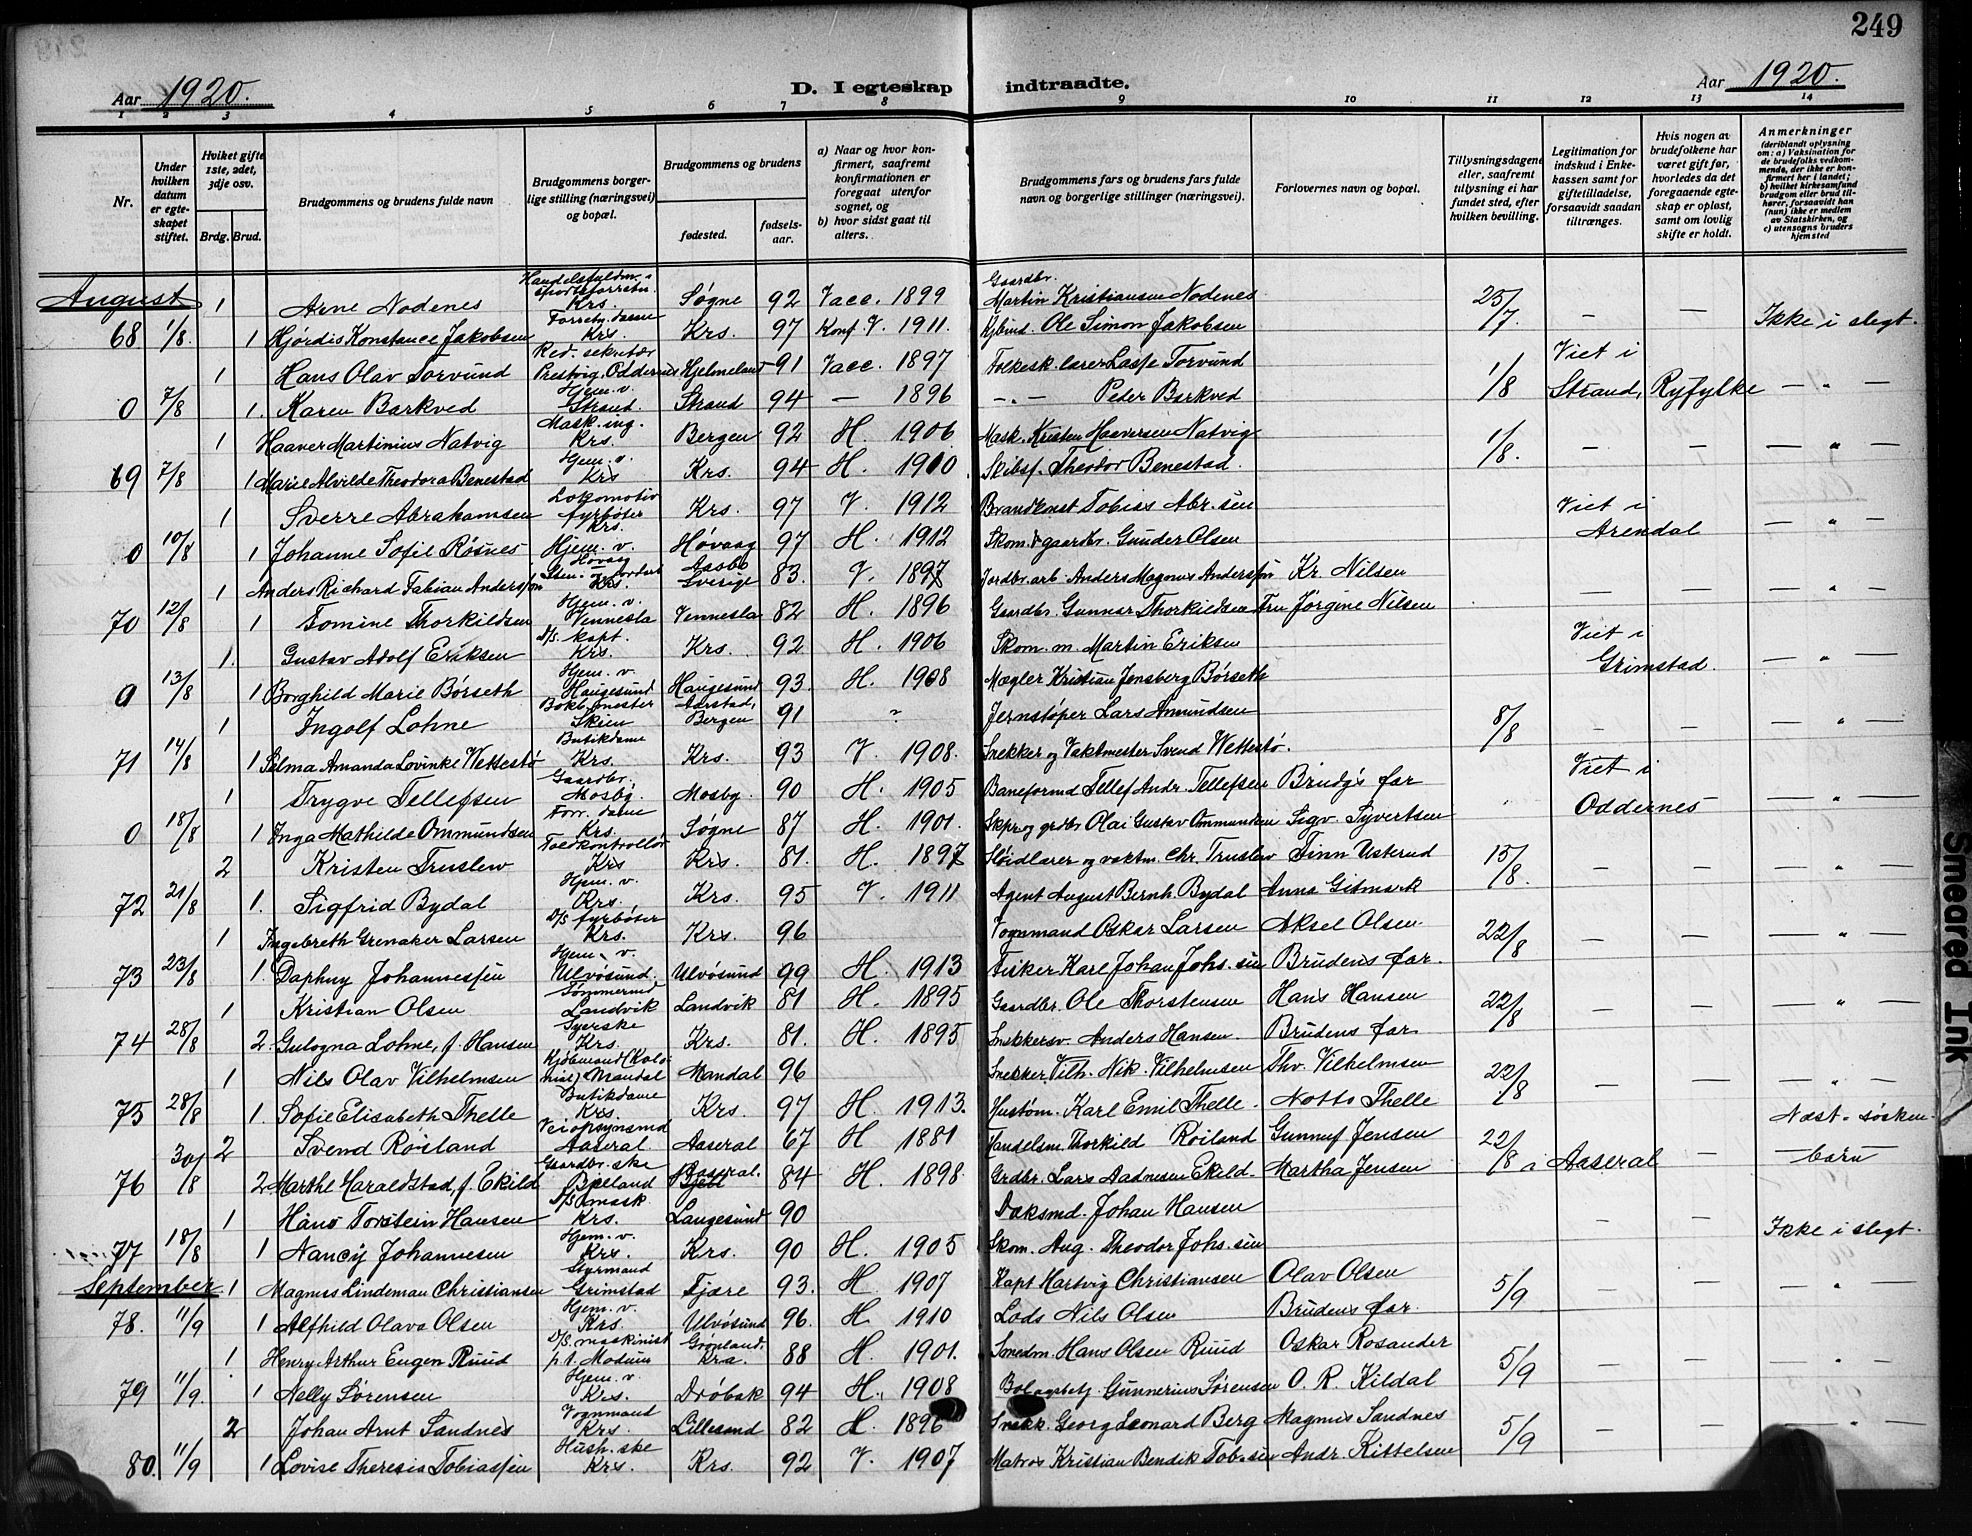 249
Aar 1920.
D. I egteskap indtraadte.
Aar 1920.
1 2 3 4 5 6 7 8 9 10 11 12 13 14
Nr.
Under hvilken datum er egteskapet stiftet.
Hvilket gifte 1ste, 2det, 3dje osv.
Brdg. Brud.
Brudgommens og brudens fulde navn
Brudgommens borgerlige stilling (næringsvei) og bopæl.
Brudgommens og brudens
fødested. fødselsaar.
a) Naar og hvor konfirmert, saafremt konfirmationen er foregaat utenfor sognet, og
b) hvor sidst gaat til alters.
Brudgommens fars og brudens fars fulde navn og borgerlige stillinger (næringsvei).
Forlovernes navn og bopæl.
Tillysningsdagene eller, saafremt tillysning ei har fundet sted, efter hvilken bevilling.
Legitimation for indskud i Enkekassen samt for giftetilladelse, forsaavidt saadan tiltrænges.
Hvis nogen av brudefolkene har været gift før, hvorledes da det foregaaende egteskap er opløst, samt om lovlig skifte er holdt.
Anmerkninger (deriblandt oplysning om: a) Vaksination for de brudefolks vedkommende, der ikke er konfirmert her i landet; b) hvilket kirkesamfund brudgom eller brud tilhører, forsaavidt han (hun) ikke er medlem av Statskirken, og c) utensogns bruders hjemsted
August 1 Arne Nodenes Krs. Søgne 92 Vacc. 1899 Gaardbr. Martin Kristiansen Nodenes 25/7
68 1/8. 1 Hjørdis Konstance Jakobsen Forretn. dame Krs. Krs. 97 Konf. V. 1911. Ole Simon Jakobsen — — Ikke i slegt.
1 Hans Olav Torvund Red. sekretær Prestvig, Oddernes Hjelmeland 91 Vacc. 1897 Folkesk. lærer Lasse Torvund 1/8 Viet i
0 7/8 1. Karen Barkved Hjem. v. Strand. Strand 94 — 1896 —„— Peder Barkved Strand, Ryfylke — „ —
1 Haaver Martinius Natvig Mask. ing. Krs. Bergen 92 H. 1906 Mask. Kristen Haaversen Natvig 1/8.
69 7/8 1 Marie Alvilde Theodora Benestad Hjem. v. Krs Krs. 94 H. 1910 Skibsf. Theodor Benestad. — — „
1 Sverre Abrahamsen Lokomotiv fyrbøter Krs. Krs. 97 V. 1912 Brandkonst Tobias Abr.sen Viet i
0 10/8 1 Johanne Sofie Røsnes Hjem. v. Høvaag Høvaag 97 H. 1912 Skom. & gaardbr. Gunder Olsen Arendal — „ —
1 Anders Richard Fabian Andersson Krs. Sverige 83. V. 1897 Jordbr.arb. Anders Magnus Andersson Kr. Nilsen
70 12/8 1 Tomine Thorkildsen Hjem. v. Vennesla Vennesla 82 H. 1896 Gaardbr. Gunnar Thorkildsen Fru Jørgine Nilsen — — — „ —
1. Gustav Adolf Eriksen D/s. kapt. Krs. Krs. 92 H. 1906 Skom. m. Martin Eriksen Viet i
0 13/8 1 Borghild Marie Børseth Hjem. v. Haugesund Haugesund 93. H. 1908 Mægler Kristian Jensberg Børseth Grimstad. — „ —
1 Ingolf Lohne Bokb. mester Skien Aarstad, Bergen 91 ? Jernstøper Lars Amundsen 8/8
71 14/8 1 Selma Amanda Lovinke Wettestø Butikdame Krs. Krs. 93 V. 1908. Snekker og Vaktmester Svend Wettestø. — — — „ —
1 Trygve Tellefsen Gaardbr. Mosby. Mosby. 90 H. 1905 Baneformd Tellef Andr. Tellefsen Brudg's far Viet i
0 18/8 1 Inga Mathilde Ommundsen Forr. dame Krs. Søgne 87 H. 1901. Skpr og grdbr Olai Gustav Ommundsen Sigv. Syvertsen Oddernes — „ —
2 Kristen Truslew Krs Krs. 81. H. 1897 Sløidlærer og vaktm. Chr. Truslew Finn Usterud 15/8
72 21/8 1. Sigfrid Bydal Hjem. v. Krs. Krs. 95 V. 1911 Agent August Bernh. Bydal Anna Gitmark — — — „ —
1 Ingebreth Grenaker Larsen D/s fyrbøter Krs. Krs. 96 Vognmand Oskar Larsen Aksel Olsen 22/8
73 23/8 1. Daphny Johannessen Hjem. v. Ulvøsund. Ulvøsund 99 H. 1913 Fisker Karl Johan Johs.sen Brudens far. — — — „ —
1 Kristian Olsen Tømmermd Landvik Landvik 81 H. 1895 Gaardbr. Ole Thorstensen Hans Hansen 22/8
74 28/8 2. Gulogna Lohne, f. Hansen Syerske Krs. Krs. 81. H. 1895 Snekkersv. Anders Hansen. Brudens far. — — — „ —
1 Nils Olav Vilhelmsen Kjøbmand (Kolonial) Mandal Mandal 96 Snekker Vilh. Nik. Vilhelmsen Thv. Vilhelmsen 22/8
75 28/8 1. Sofie Elisabeth Thelle Butikdame Krs. Krs. 97 H. 1913. Hustøm. Karl Emil Thelle. Notto Thelle — — — „ —
2 Svend Røiland Veiopsynsmd Aaseral Aaseral 67 H 1881 Handelsm. Thorkild Røiland Gunnuf Jensen 22/8 Næst-søsken-
76 30/8 2 Marthe Haraldstad, f. Ekild Gaardbr. ske Bjelland Aaseral. 84 H. 1898. Grdbr. Lars Aadnesen Ekild Martha Jensen i Aaseral — børn
1 Hans Torstein Hansen D/s mask. Krs. Langesund 90 Dæksmd. Johan Hansen
77 18/8 1 Nancy Johannesen Hjem. v. Krs. Krs. 90 H. 1905 Skom. Aug. Theodor Johs.sen — — Ikke i slegt.
September. 1 Magnus Lindeman Christiansen Styrmand Grimstad Fjære 93. H. 1907 Kapt Hartvig Christiansen Olav Olsen 5/9
78. 11/9 1 Alfhild Olava Olsen Hjem. v. Krs. Ulvøsund 96. H 1910 Lods Nils Olsen Brudens far. — — — „ —
1 Henry Arthur Eugen Ruud D/s. maskinist p.t. Modum Grønland, Kra. 88 H. 1901. Smedm. Hans Olsen Ruud Oskar Rosander 5/9
79 11/9. 1 Nelly Sørensen Hjem. v. Krs. Drøbak 94 H. 1908 Gunnerius Sørensen O. R. Kildal — — — „ —
2 Johan Arnt Sandnes Vognmand Krs. Lillesand 82 H. 1896 Snekk. Georg Leonard Berg Magnus Sandnes 5/9
80. 11/9 1 Lovise Theresia Tobiassen Hush. ske Krs. Krs. 92 V. 1907 Matros Kristian Bendik Tob.sen Andr. Kittelsen — — — „ —
Smeared Ink